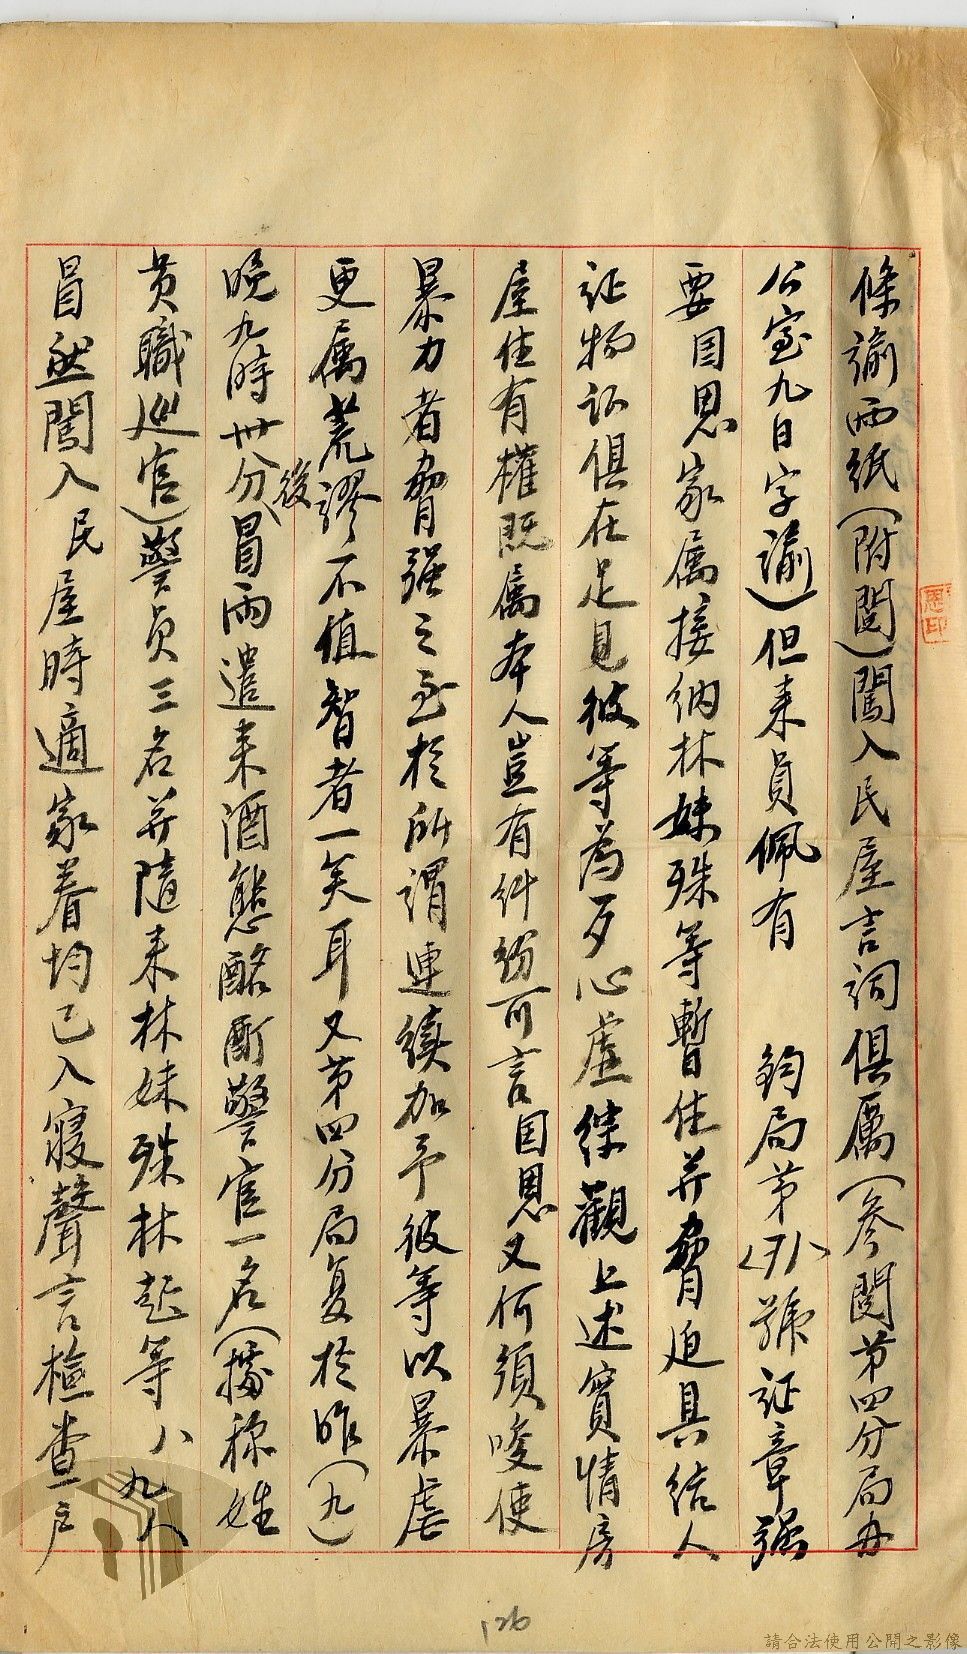 條諭兩紙（附閱）闖入民屋言詞俱厲（參閱第四分局办
公室九日字諭）但来員佩有　鈞局第　號証章强
要国恩家属接纳林妹殊等暫住并脅迫具结人
証物証俱在足見彼等為歹心虛綜觀上述實情房
屋住有權既属本人豈有糾紛可言国恩又何須唆使
暴力者脅强之至於所謂連续加予彼等以暴虐
更属荒謬不值智者一笑耳又第四分局复於昨（九）
晚九時卅分後冒雨遣来酒態酩酊警官一名（據称姓
黄職巡官）警員三名并隨来林妹殊林起等八九人
冒然闖入民屋時適家眷均已入寢聲言檢查户
恩印
126
請合法使用公開之影像